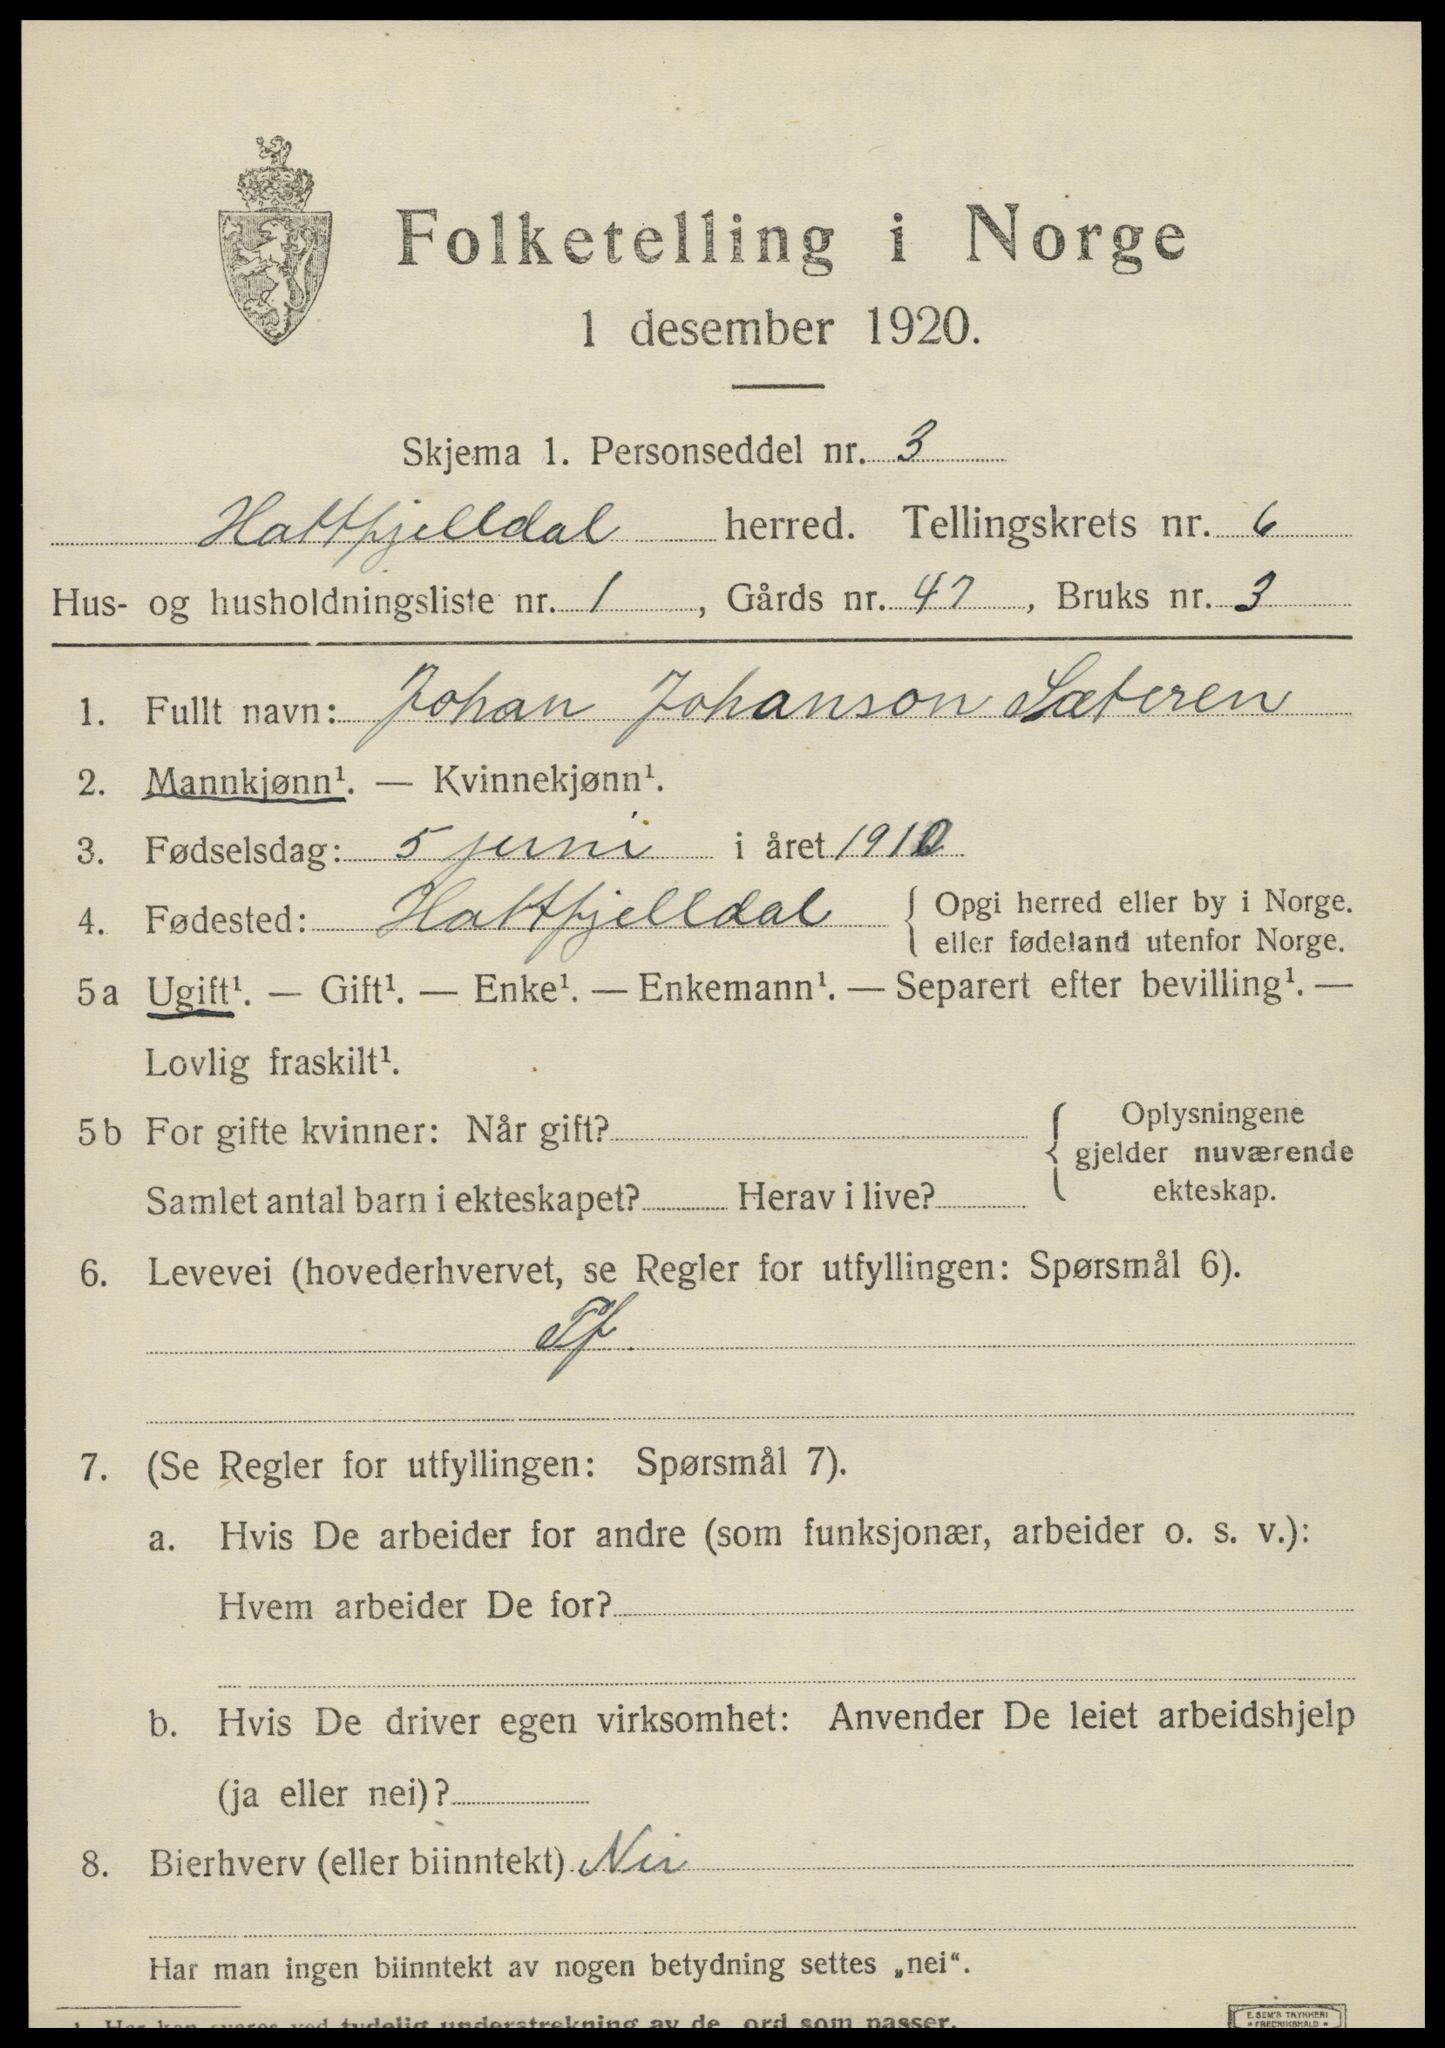 Folketelling i Norge
1 desember 1920.
Skjema 1. Personseddel nr. 3
Hattfjelldal herred. Tellingskrets nr. 6
Hus- og husholdningsliste nr. 1, Gårds nr. 47, Bruks nr. 3
1. Fullt navn: Johan Johanson Sæteren
2. Mannkjønn¹. — Kvinnekjønn¹.
3. Fødselsdag: 5 juni i året 1910
4. Fødested: Hattfjelldal { Opgi herred eller by i Norge.
eller fødeland utenfor Norge.
5a Ugift¹. — Gift¹. — Enke¹. — Enkemann¹. — Separert efter bevilling¹. —
Lovlig fraskilt¹.
5b For gifte kvinner: Når gift?
Samlet antal barn i ekteskapet? Herav i live?
{ Oplysningene
gjelder nuværende
ekteskap.
6. Levevei (hovederhvervet, se Regler for utfyllingen: Spørsmål 6).
Tf.
7. (Se Regler for utfyllingen: Spørsmål 7).
a. Hvis De arbeider for andre (som funksjonær, arbeider o. s. v.):
Hvem arbeider De for?
b. Hvis De driver egen virksomhet: Anvender De leiet arbeidshjelp
(ja eller nei)?
8. Bierhverv (eller biinntekt) Nei
Har man ingen biinntekt av nogen betydning settes „nei“.
1. Her kan svares ved tydelig understrekning av de ord som passer.
E. SEM'S TRYKKERI
* FREDRIKSHALD *